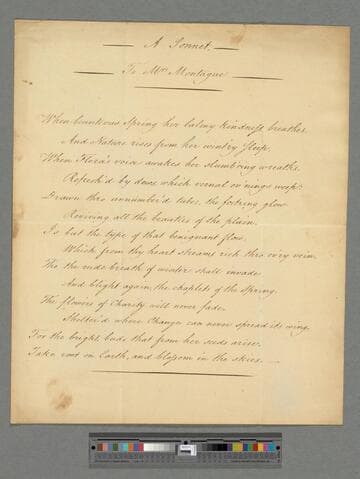 A Sonnet.
To Mrs Montague
When beauteous Spring her balmy kindness breathes
And Nature rises from her wint'ry sleep,
When Flora's voice awakes her slumb'ring wreaths
Refresh'd by dews which vernal ev'nings weep:
Drawn thro unnumber'd tubes, the fost'ring glow
Reviving all the beauties of the plain.
Is but the type of that benignant flow,
Which from thy heart streams rich thro ev'ry vein.
Tho the rude breath of winter shall invade
And blight again the chaplets of the Spring.
The flowers of Charity will never fade
Shelter'd where Change can never spread its wing.
For the bright buds that from her seeds arise,
Take root on Earth, and blossom in the skies.